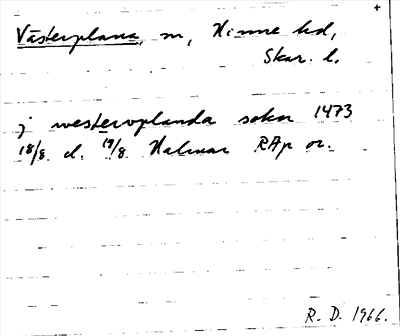 Västerplana, sn, Kinne hd,
Skar. l.
j westerplanda sokn 1473
18/8 el. 19/8 Kalmar RAp or.
R. D. 1966.